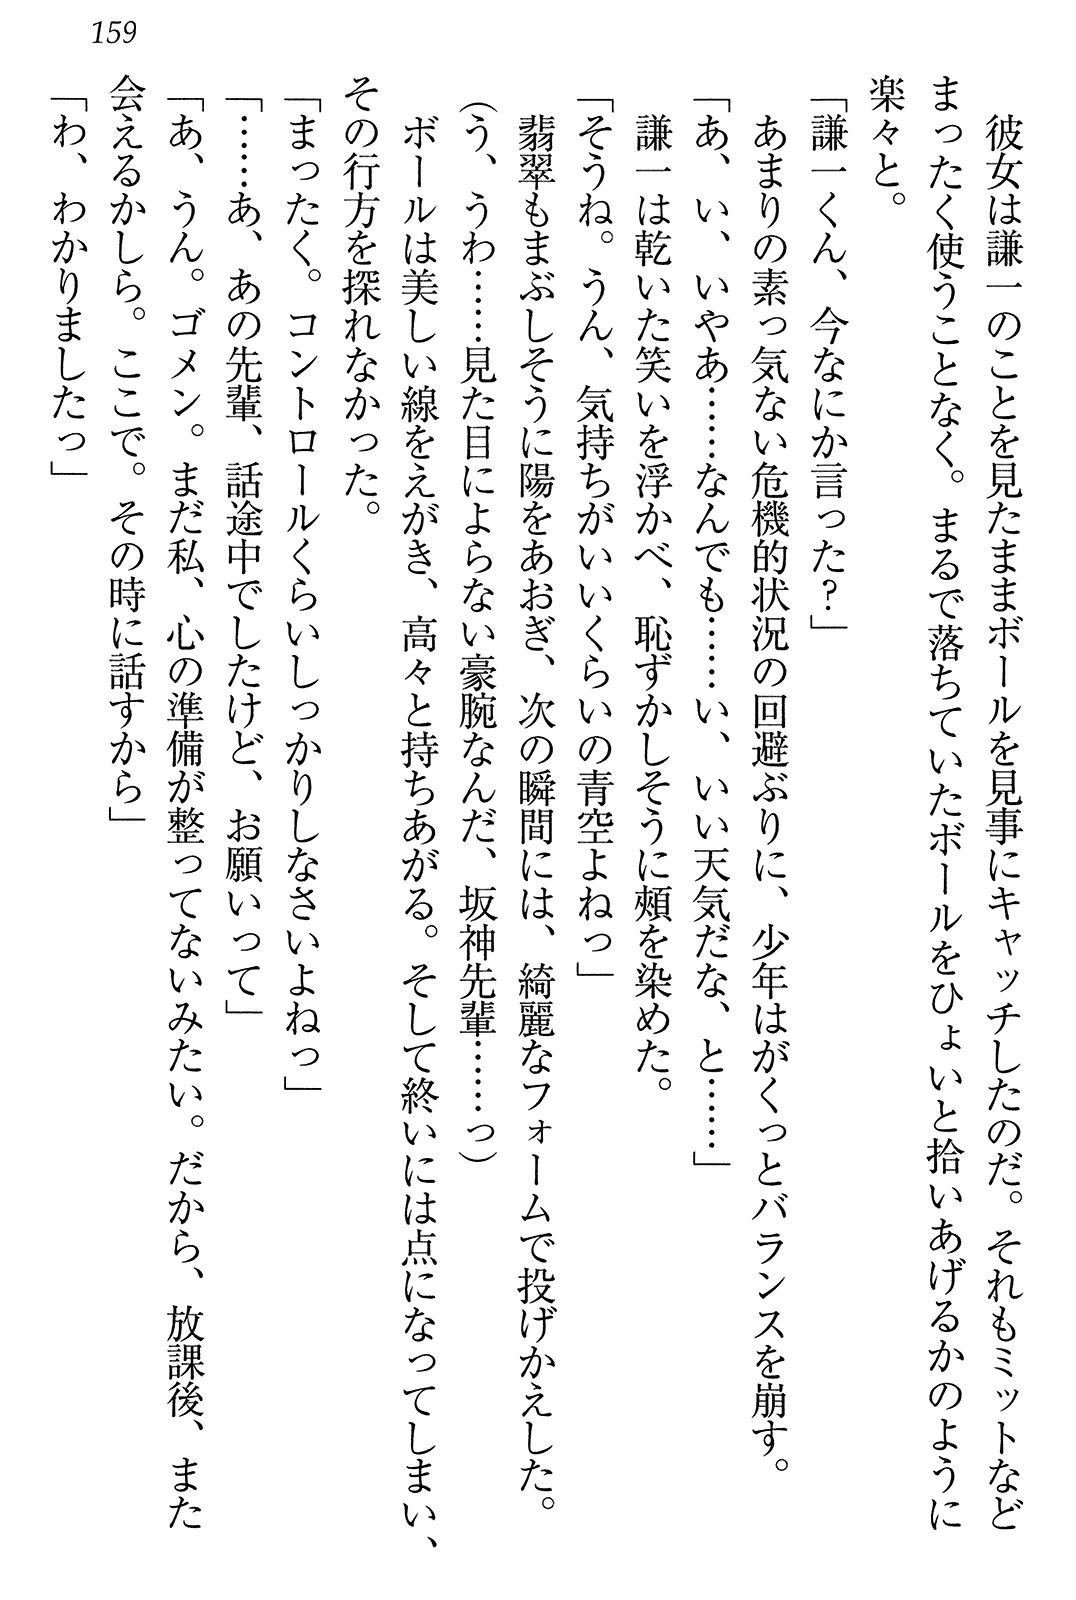 159
彼女は謙一のことを見たままボールを見事にキャッチしたのだ。それもミットなど
まったく使うことなく。まるで落ちていたボールをひょいと拾いあげるかのように
楽々と。
「謙一くん、今なにか言った?」
あまりの素っ気ない危機的状況の回避ぶりに、少年はがくっとバランスを崩す。
「あ、い、いやあ……なんでも……い、いい天気だな、と……」
謙一は乾いた笑いを浮かべ、恥ずかしそうに頰を染めた。
「そうね。うん、気持ちがいいくらいの青空よねっ」
翡翠もまぶしそうに陽をあおぎ、次の瞬間には、綺麗なフォームで投げかえした。
(う、うわ……見た目によらない豪腕なんだ、坂神先輩……っ)
ボールは美しい線をえがき、高々と持ちあがる。そして終いには点になってしまい、
その行方を探れなかった。
「まったく。コントロールくらいしっかりしなさいよねっ」
「……あ、あの先輩、話途中でしたけど、お願いって」
「あ、うん。ゴメン。まだ私、心の準備が整ってないみたい。だから、放課後、また
会えるかしら。ここで。その時に話すから」
「わ、わかりましたっ」